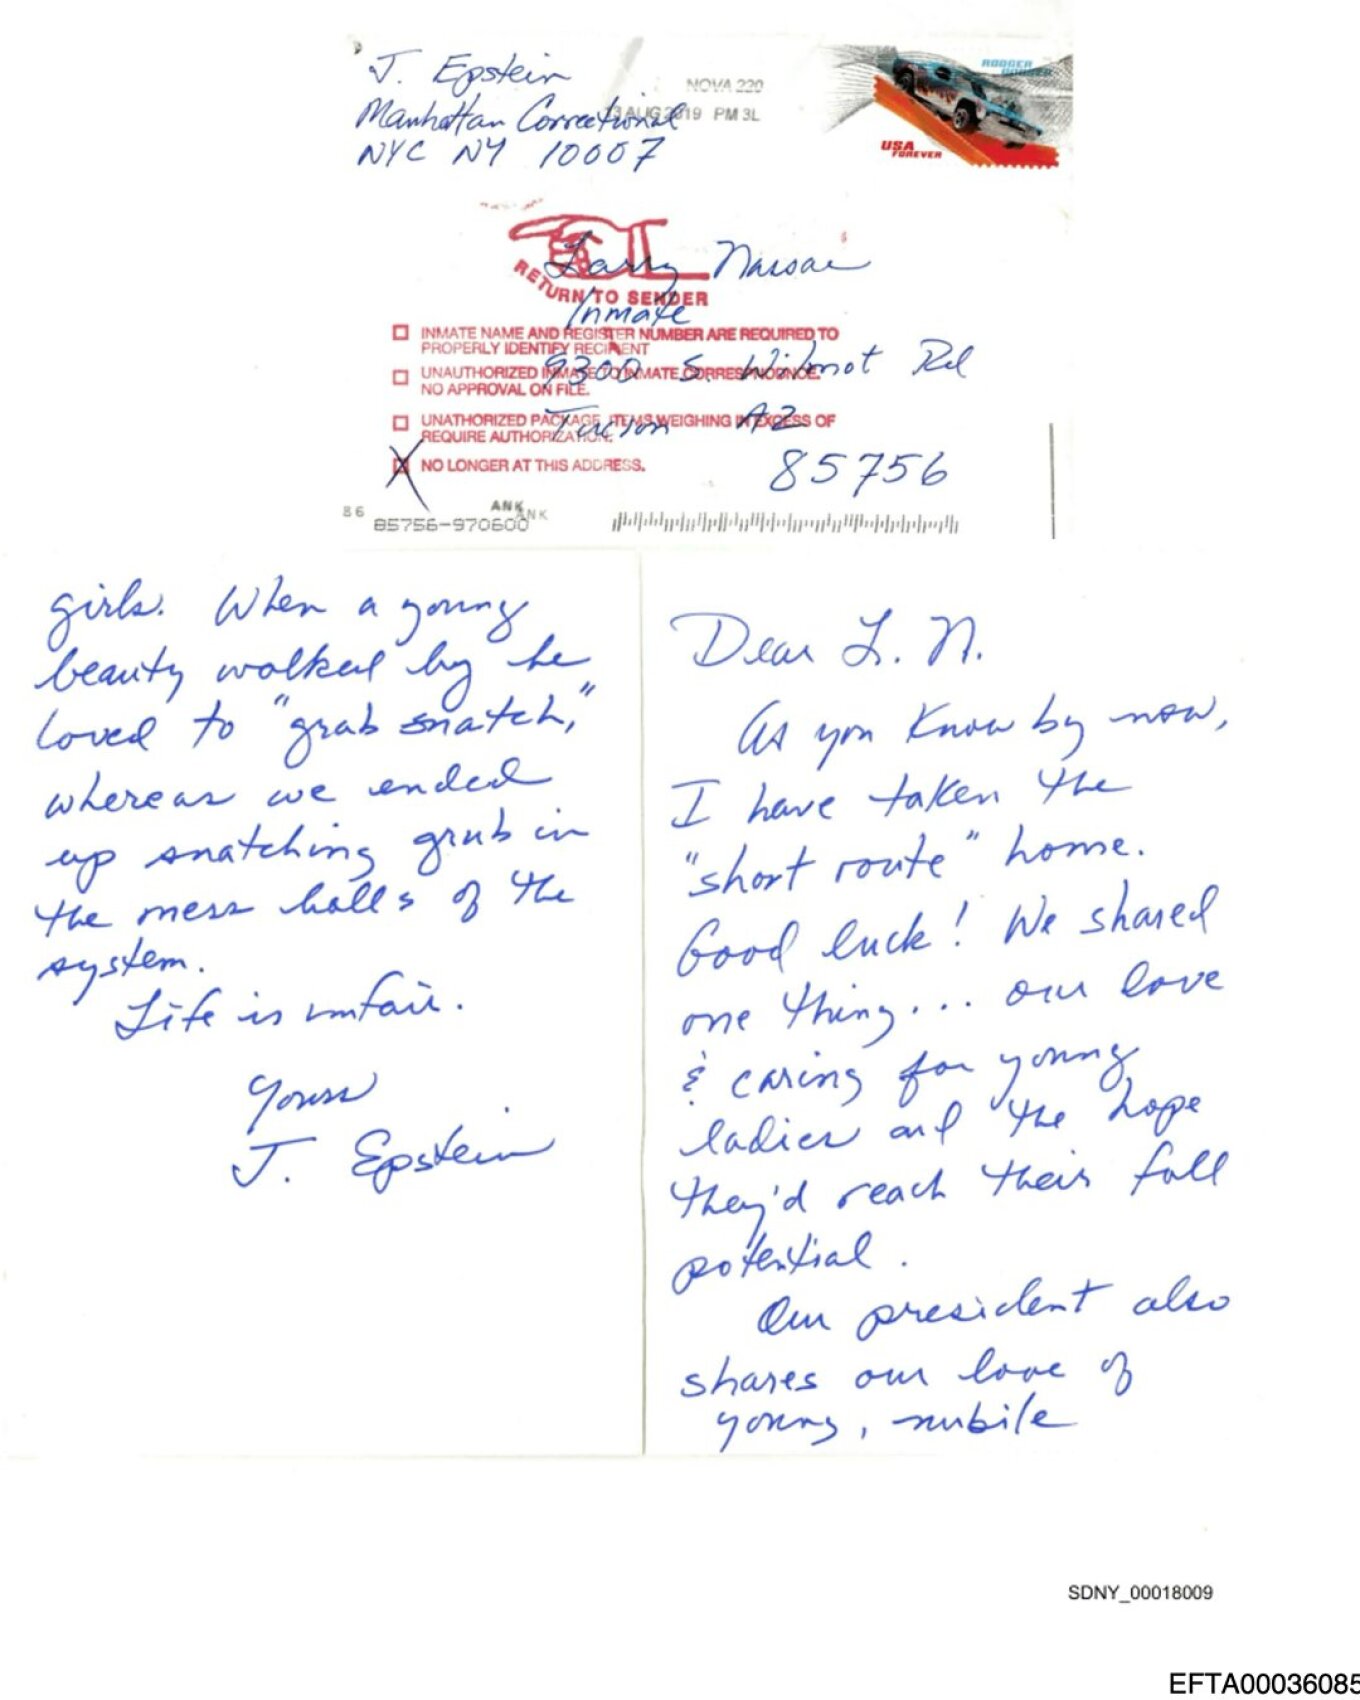 J. Epstein
Manhattan Correctional
NYC NY 10007
NOVA 220
AUG 2019 PM 3L
RODGER
USA
FOREVER
Larry Nassar
Inmate
9300 S. Wilmot Rd
Tucson AZ
85756
RETURN TO SENDER
INMATE NAME AND REGISTER NUMBER ARE REQUIRED TO
PROPERLY IDENTIFY RECIPIENT
UNAUTHORIZED INMATE TO INMATE CORRESPONDNCE.
NO APPROVAL ON FILE.
UNATHORIZED PACKAGE, ITEMS WEIGHING IN EXCESS OF
REQUIRE AUTHORIZATION.
X NO LONGER AT THIS ADDRESS.
86
ANK
ANK
85756-970600
Dear L. N.
As you know by now,
I have taken the
"short route" home.
Good luck! We shared
one thing... our love
& caring for young
ladies and the hope
they'd reach their full
potential.
Our president also
shares our love of
young, nubile
girls. When a young
beauty walked by he
loved to "grab snatch,"
whereas we ended
up snatching grub in
the mess halls of the
system.
Life is unfair.
Yours
J. Epstein
SDNY_00018009
EFTA00036085